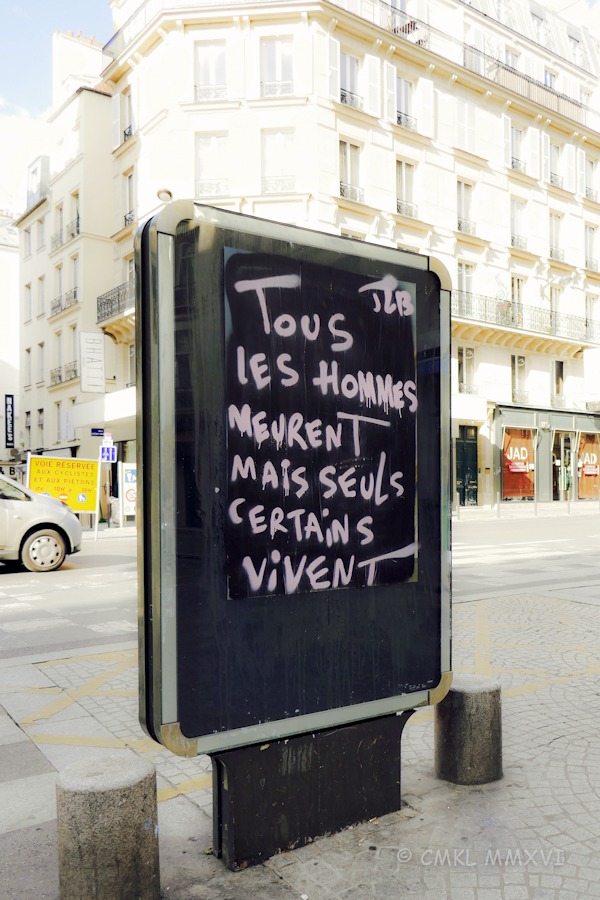 JLB
TOUS
LES HOMMES
MEURENT
MAIS SEULS
CERTAINS
VIVENT
VOIE RÉSERVÉE
AUX CYCLISTES
ET AUX PIÉTONS
JAD
JAD
© CMKL MMXVI